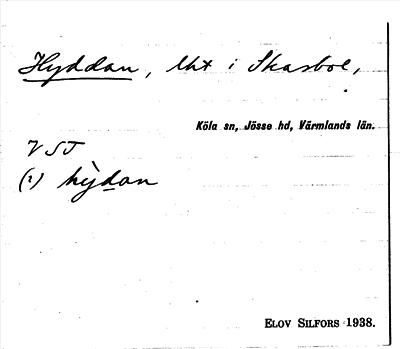 Hyddan, lht i Skarbol,
Köla sn, Jösse hd, Värmlands län.
VST
(2) hỳdan
ELOV SILFORS 1938.